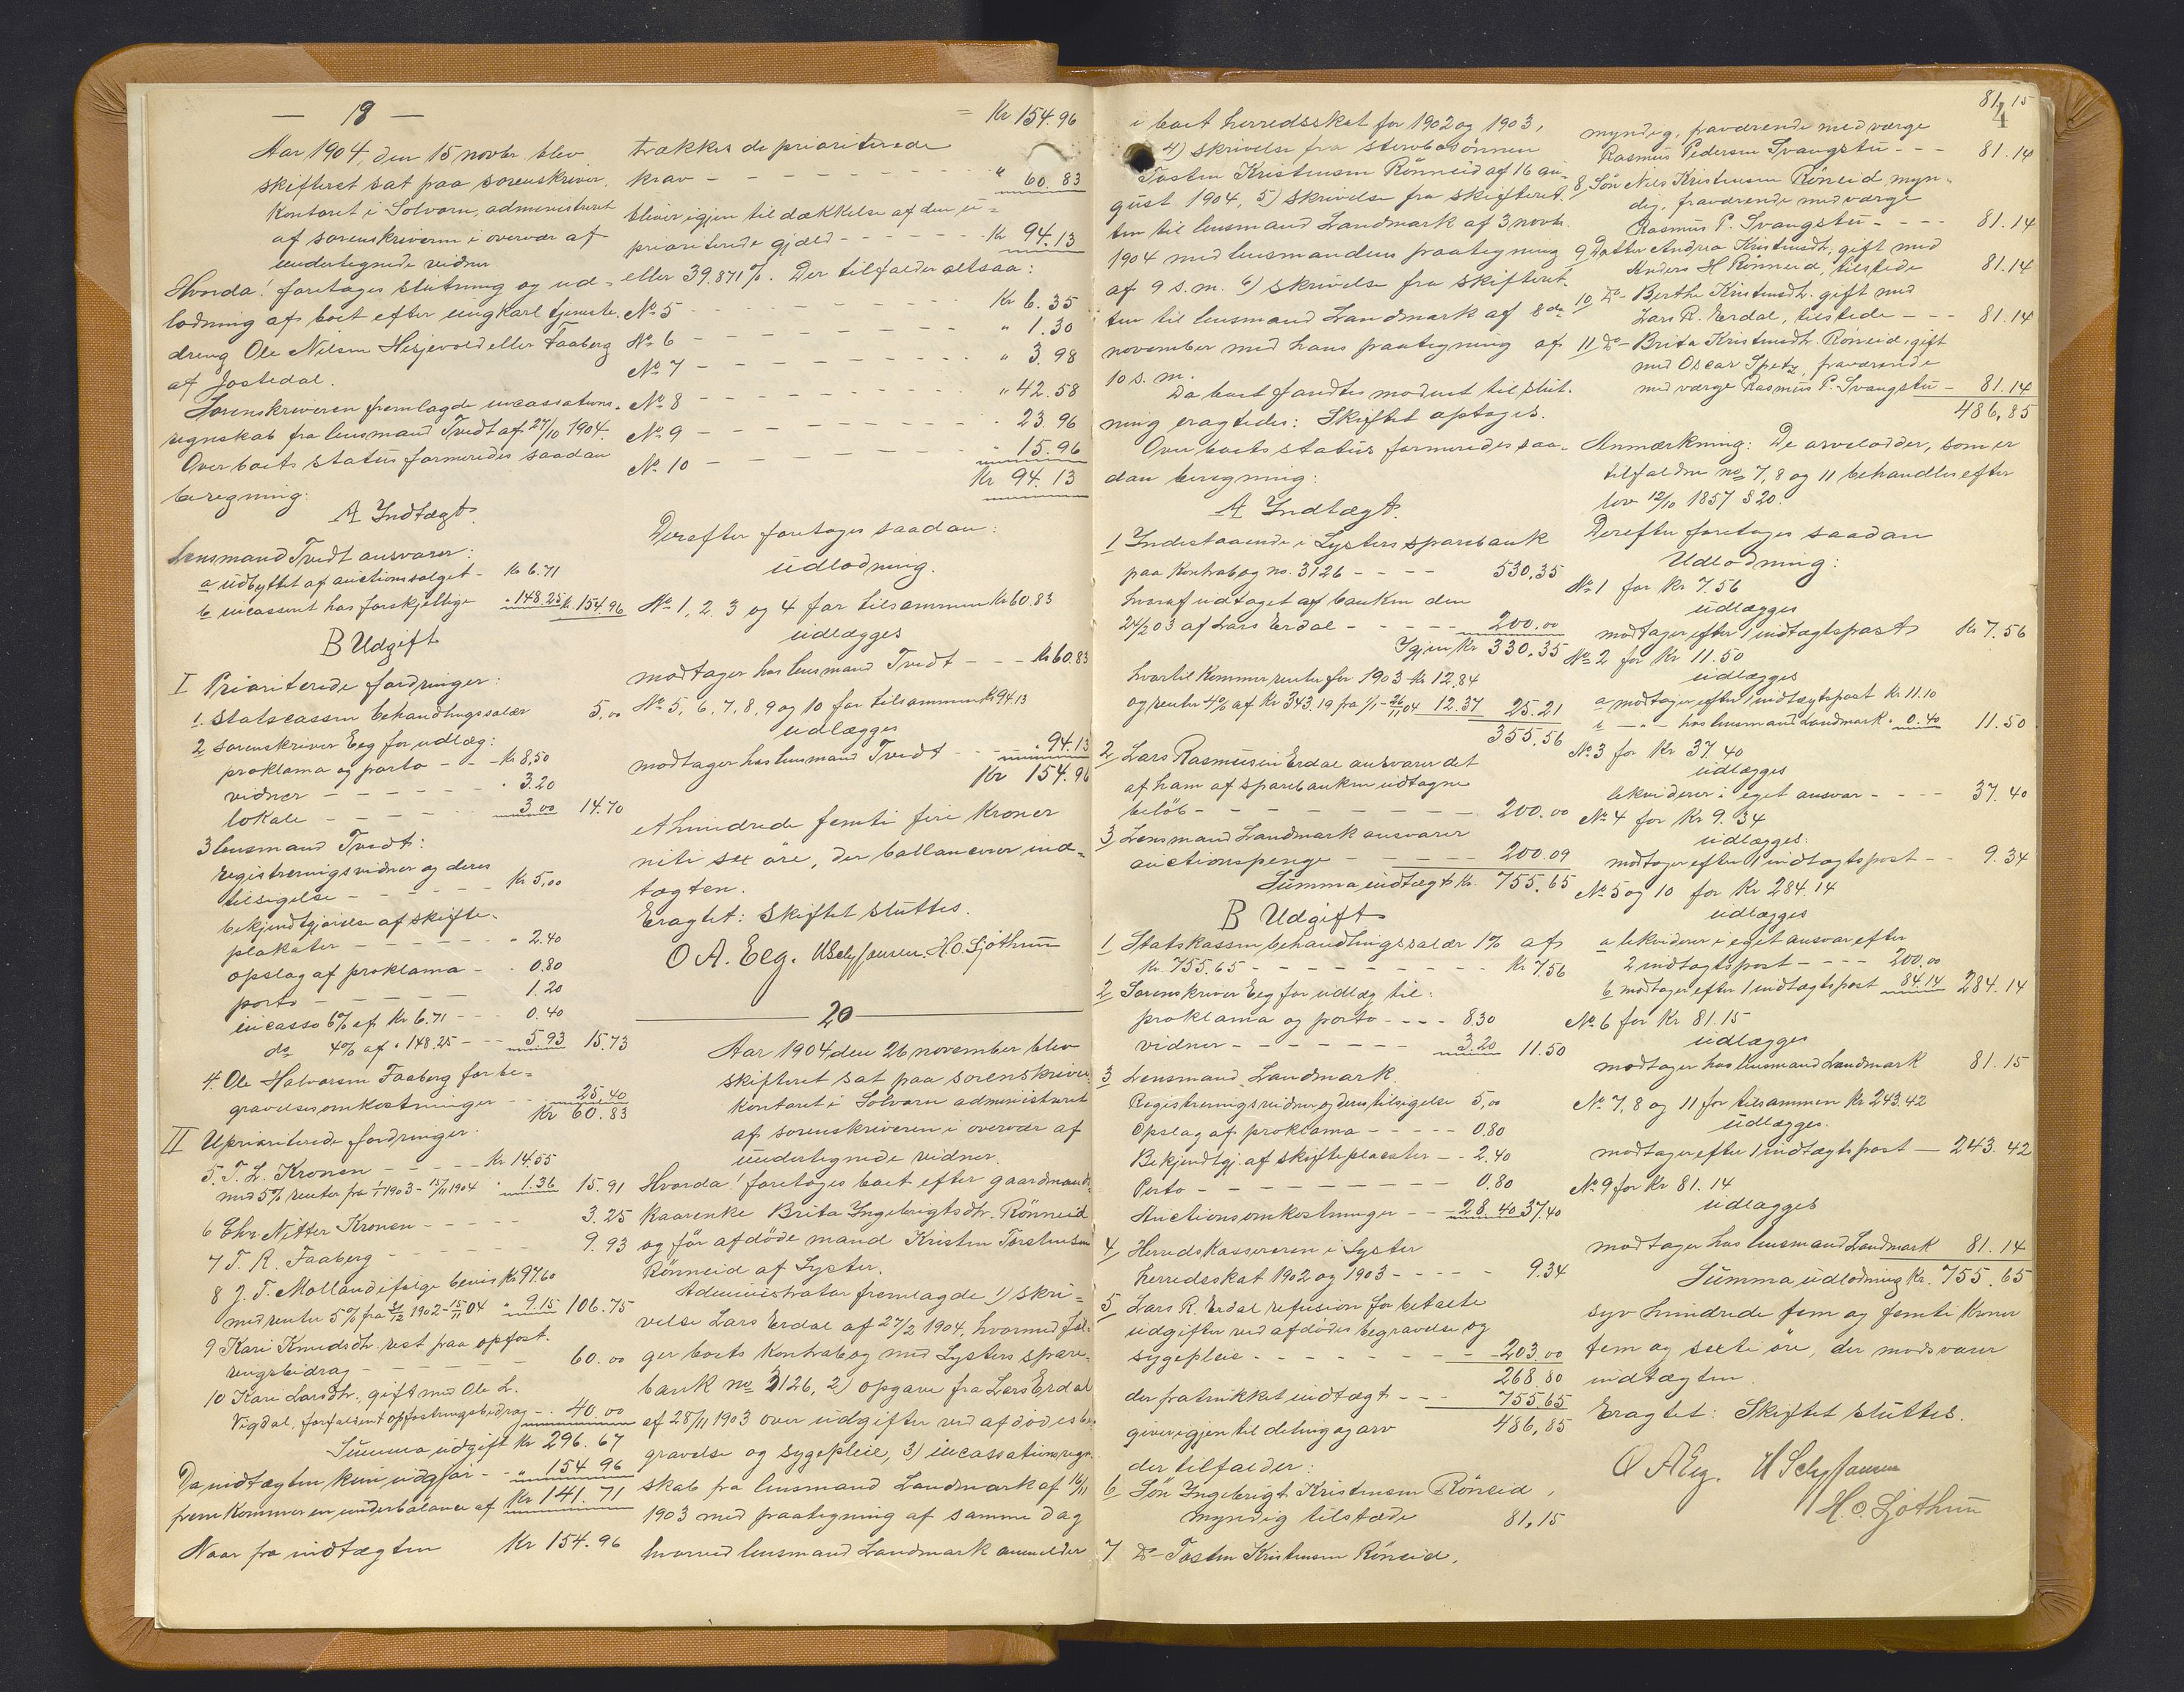 — 18 —
Aar 1904, den 15 novbr. blev
skifteret sat paa sorenskriver-
kontoret i Solvorn, administreret
af sorenskriveren i overvær af
undertegnede vidner
Hvorda! foretoges slutning og ud-
lodning af boet efter ungkarl tjeneste-
dreng Ole Nilsen Hesjevold eller Faaberg
af Jostedal.
Sorenskriveren fremlagde incassations-
regnskab fra lensmand Tvedt af 27/10 1904.
Over boets status formeredes saadan
beregning:
A Indtægt.
Lensmand Tvedt ansvarer:
a udbyttet af auctionssalget - Kr 6.71
b incasseret hos forskjellige " 148.25 Kr. 154.96
B Udgift
I Prioriterede fordringer:
1. Statscassen behandlingssalær 5.00
2 sorenskriver Eeg for udlæg:
proklama og porto - - Kr 8,50
vidner - - - - - " 3.20
lokale - - - - - 3.00 14.70
3 lensmand Tvedt:
registreringsvidner og deres
tilsigelse - - - - - Kr 5,00
bekjendtgjørelse af skifte-
plakater - - - - - " 2.40
opslag af proklama - " 0.80
porto - - - - - 1.20
incasso 6% af Kr 6.71 - - - 0.40
do 4% af " 148.25 - - 5.93 15.73
4. Ole Halvorsen Faaberg for be-
gravelsesomkostninger - - 25,40
Kr 60.83
II Uprioriterede fordringer:
5. T. L. Kronen - - - - - Kr 14.55
med 5% renter fra 1/1 1903 - 15/11 1904 " 1.36 15.91
6 Chr. Nitter Kronen - - - - - 3.25
7 T. R. Faaberg - - - - - 9.93
8 J. T. Molland ifølge bevis Kr 97.60
med renter 5% fra 31/12 1902 - 15/11 04 " 9.15 106.75
9 Kari Knudsdtr. rest paa opfost-
ringsbidrag - - - - - 60.00
10 Kari Larsdtr., gift med Ole L.
Vigdal, forfaldent opfostringsbidrag - . 40.00
Summa udgift Kr 296.67
Da indtægten kun udgjør - - " 154.96
fremkommer en underbalance af Kr 141.71
Naar fra indtægten Kr 154.96
= Kr 154.96
trækkes de prioriterede
krav - - - - - " 60.83
bliver igjen til dækkelse af den u-
prioriterede gjæld - - - - - Kr 94.13
eller 39.871%. Der tilfalder altsaa:
No 5 - - - - - Kr 6.35
No 6 - - - - - " 1.30
No 7 - - - - - " 3.98
No 8 - - - - - " 42.58
No 9 - - - - - " 23.96
No 10 - - - - - " 15.96
Kr 94.13
Derefter foretoges saadan:
udlodning.
No 1, 2, 3 og 4 for tilsammen Kr 60.83
udlægges
modtager hos lensmand Tvedt - - - Kr 60.83
No 5, 6, 7, 8, 9 og 10 for tilsammen Kr 94.13
udlægges
modtager hos lensmand Tvedt - - - " 94.13
Kr 154.96
et hundrede femti fire Kroner
niti sex øre, der ballancerer ind-
tægten.
Eragtet: Skiftet sluttes.
O A. Eeg. H.O. Sjøthun
— 20 —
Aar 1904, den 26 november blev
skifteret sat paa sorenskriver-
kontoret i Solvorn administreret
af sorenskriveren i overvær af
undertegnede vidner.
Hvorda! foretoges boet efter gaardmands-
kaarenke Brita Ingebrigtsdtr. Rønneid
og før afdøde mand Kristen Torstensen
Rønneid af Lyster.
Administrator fremlagde 1) skri-
velse Lars Erdal af 27/2 1904, hvormed føl-
ger boets kontrabog med Lysters spare-
bank no 3126, 2) opgave fra Lars Erdal
af 28/11 1903 over udgifter ved afdødes be-
gravelse og sygepleie, 3) incassationsregn-
skab fra lensmand Landmark af 16/11
1903 med paategning af samme dag
hvorved lensmand Landmark anmelder
81,15
4
i boet herredsskat for 1902 og 1903,
4) skrivelse fra stervbosønnen
Tosten Kristensen Rönneid af 16 au-
gust 1904, 5) skrivelse fra skifteret-
ten til lensmand Landmark af 3 novbr.
1904 med lensmandens paategning
af 9 s. m. 6) skrivelse fra skifteret-
ten til lensmand Landmark af 8de
november med hans paategning af
10 s. m.
Da boet fandtes modent til slut-
ning eragtedes: Skiftet optages.
Over boets status formeredes saa-
dan beregning:
A Indtægt.
1 Indestaaende i Lysters sparebank
paa Kontrabog no. 3126 - - - - 530,35
hvoraf udtaget af banken den
24/2 03 af Lars Erdal - - - - - 200.00
Igjen Kr 330.35
hvortil kommer renter for 1903 Kr 12.84
og renter 4% af Kr 343.19 fra 1/1 - 26/11 04 12.37 25.21
355.56
2 Lars Rasmusen Erdal ansvarer det
af ham af sparebanken udtagne
beløb - - - - - 200.00
3 Lensmand Landmark ansvarer
auctionspenge - - - - - 200.09
Summa indtægt Kr. 755.65
B Udgift
1 Statskassen behandlingssalær 1% af
Kr. 755.65 - - - - - Kr 7.56
2 Sorenskriver Eeg for udlæg til:
proklama og porto - - - - 8.30
vidner - - - - - 3.20 11.50
3 Lensmand Landmark.
Registreringsvidner og deres tilsigelse 5,00
Opslag af proklama - - - - - 0.80
Bekjendtgj. af skifteplacater - - 2.40
Porto - - - - - 0.80
Auctionsomkostninger - - - 28.40 37.40
4 Herredskassereren i Lyster
herredsskat 1902 og 1903 - - - - - 9.34
5 Lars R. Erdal refusion for betalte
udgifter ved afdødes begravelse og
sygepleie - - - - - 203.00
268.80
der fratrukket indtægt - - - 755.65
giver igjen til deling og arv 486,85
der tilfalder:
6 Søn Ingebrigt Kristensen Röneid,
myndig tilstede 81,15
7 Do- Tosten Kristensen Röneid,
myndig, fraværende med værge
Rasmus Pedersen Svangstu - - - 81.14
8 Søn Nils Kristensen Röneid, myn-
dig, fraværende med værge
Rasmus P. Svangstu - - - - 81.14
9 Datter Andrea Kristensdtr. gift med
Anders H Rönneid, tilstede 81.14
10 Do- Berthe Kristensdtr. gift med
Lars R. Erdal, tilstede - - - 81.14
11 Do- Brita Kristensdtr. Röneid, gift
med Oscar Spetz, fraværende
med værge Rasmus P. Svangstu - 81.14
486,85
Anmærkning: De arvelodder, som er
tilfaldne no 7, 8 og 11 behandles efter
lov 12/10 1857 § 20.
Derefter foretoges saadan
Udlodning:
No 1 for Kr 7.56
udlægges
modtager efter 1 indtægtspost Kr 7.56
No 2 for Kr 11.50
udlægges
a modtager efter 1 indtægtspost Kr 11.10
— " — hos lensmand Landmark " 0.40 11.50
No 3 for Kr 37.40
udlægges
likviderer i eget ansvar - - - - 37.40
No 4 for Kr 9.34
udlægges:
modtager efter 1 indtægtspost - - 9.34
No 5 og 10 for Kr 284.14
udlægges
a likviderer i eget ansvar efter
2 indtægtspost - - - - 200.00
b modtager efter 1 indtægtspost 84.14 284.14
No 6 for Kr 81.15
udlægges
modtager hos lensmand Landmark 81.15
No 7, 8 og 11 for tilsammen Kr 243.42
udlægges.
modtager efter 1 indtægtspost — 243.42
No 9 for Kr 81.14
udlægges
modtager hos lensmand Landmark 81.14
Summa udlodning Kr. 755.65
syv hundrede fem og femti Kroner
fem og sexti øre, der modsvarer
indtægten.
Eragtet: Skiftet sluttes.
O A Eeg.
H.O. Sjøthun